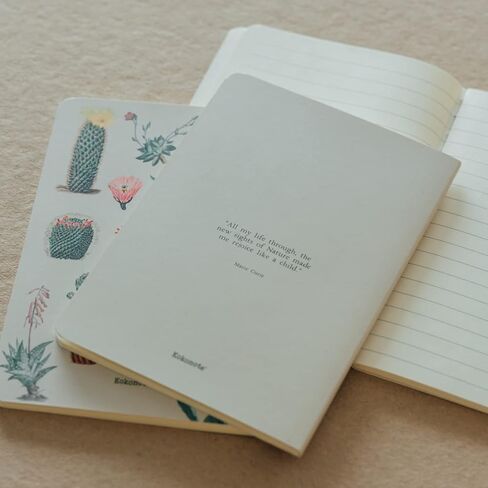 "All my life through, the
new sights of Nature made
me rejoice like a child."
Marie Curie
Kokonote
Kokono